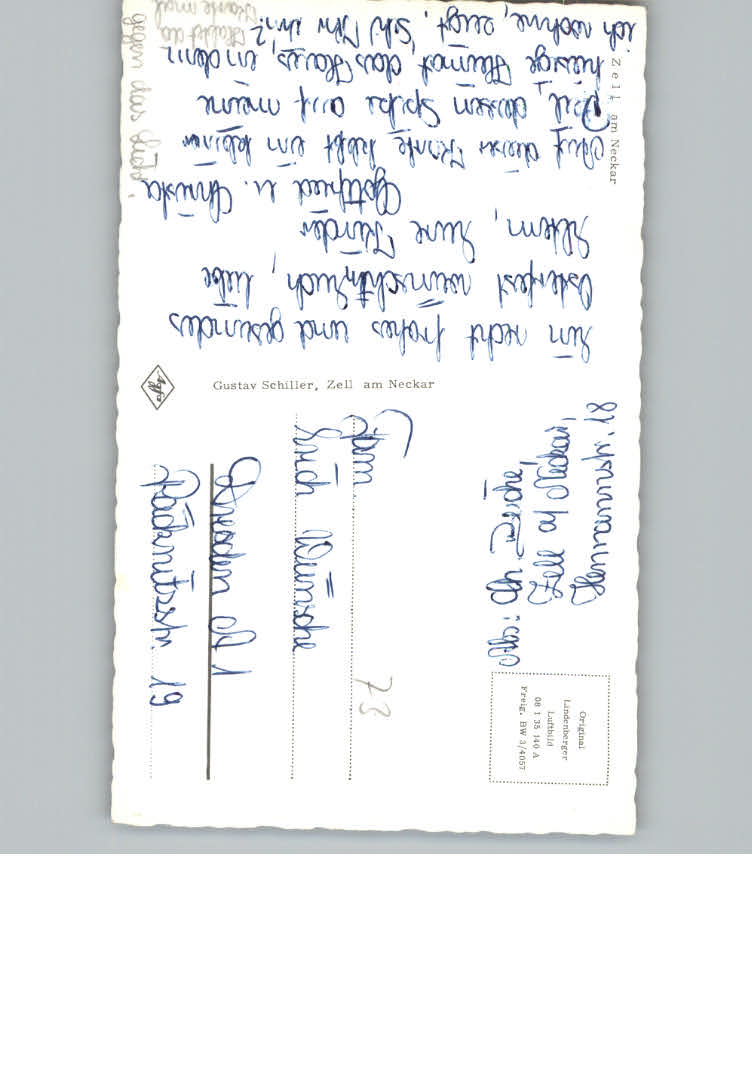 Zell am Neckar
Ein recht frohes und gesundes
Osterfest wünschen Euch, liebe
Eltern, Eure Kinder
Gottfried u. Christa
Auf dieser Karte klebt ein kleiner
Pfeil, dessen Spitze auf meine
hiesige Heimat, das Haus, in dem
ich wohne, zeigt. Seht Ihr ihn?
Haltet die
Karte mal
gegen das Licht!
Agfa
Gustav Schiller, Zell am Neckar
Abs.: G.
Zell
18
Fam.
Erich Wünsche
Dresden A 1
Räcknitzstr. 19
73
Original
Lindenberger
Luftbild
08 1 35 140 A
Freig. BW 3/4057